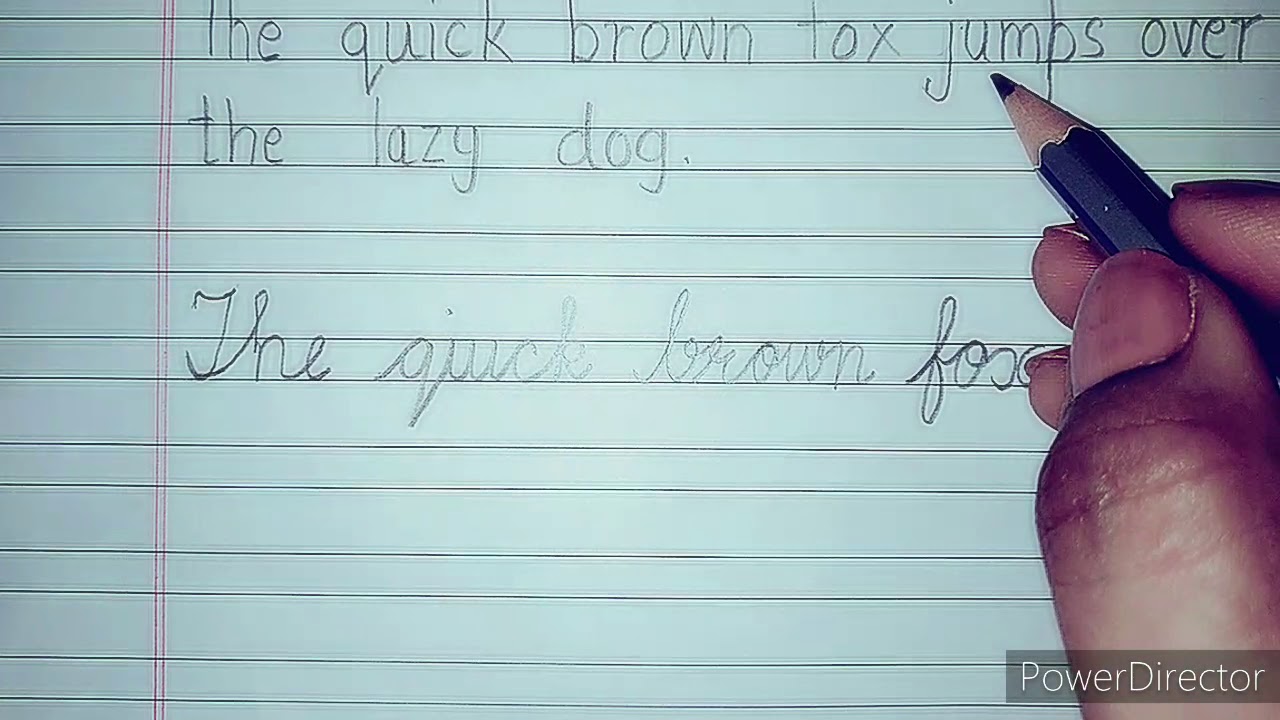 The quick brown fox jumps over
the lazy dog.
The quick brown fox
PowerDirector